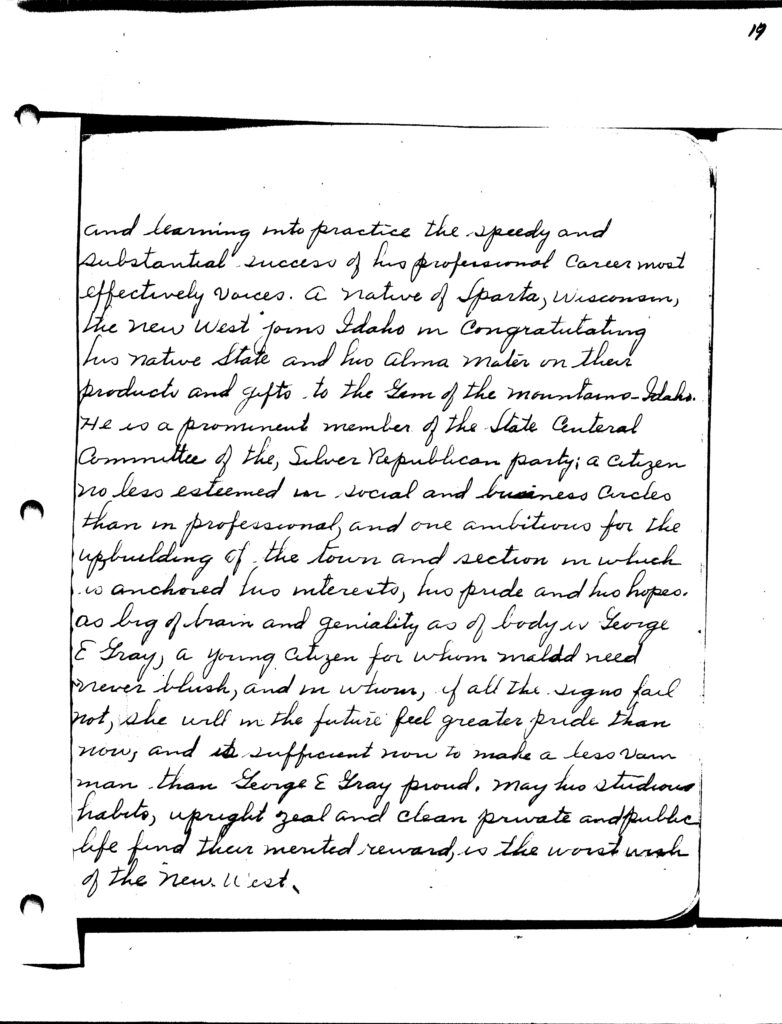 19
and learning into practice the speedy and
substantial success of his professional career most
effectively voices. A native of Sparta, Wisconsin,
the New West joins Idaho in Congratutating
his native State and his alma mater on their
products and gifts to the Gem of the mountains-Idaho.
He is a prominent member of the State Centeral
Committee of the, Silver Republican party; a citizen
no less esteemed in social and business circles
than in professional, and one ambitious for the
upbuilding of the town and section in which
is anchored his interests, his pride and his hopes.
as big of brain and geniality as of body is George
E Gray, a young citizen for whom malad need
never blush, and in whom, if all the signs fail
not, she will in the future feel greater pride than
now, and is sufficient now to make a less vain
man than George E Gray proud. May his studious
habits, upright zeal and clean private and public
life find their merited reward, is the worst wish
of the New West.